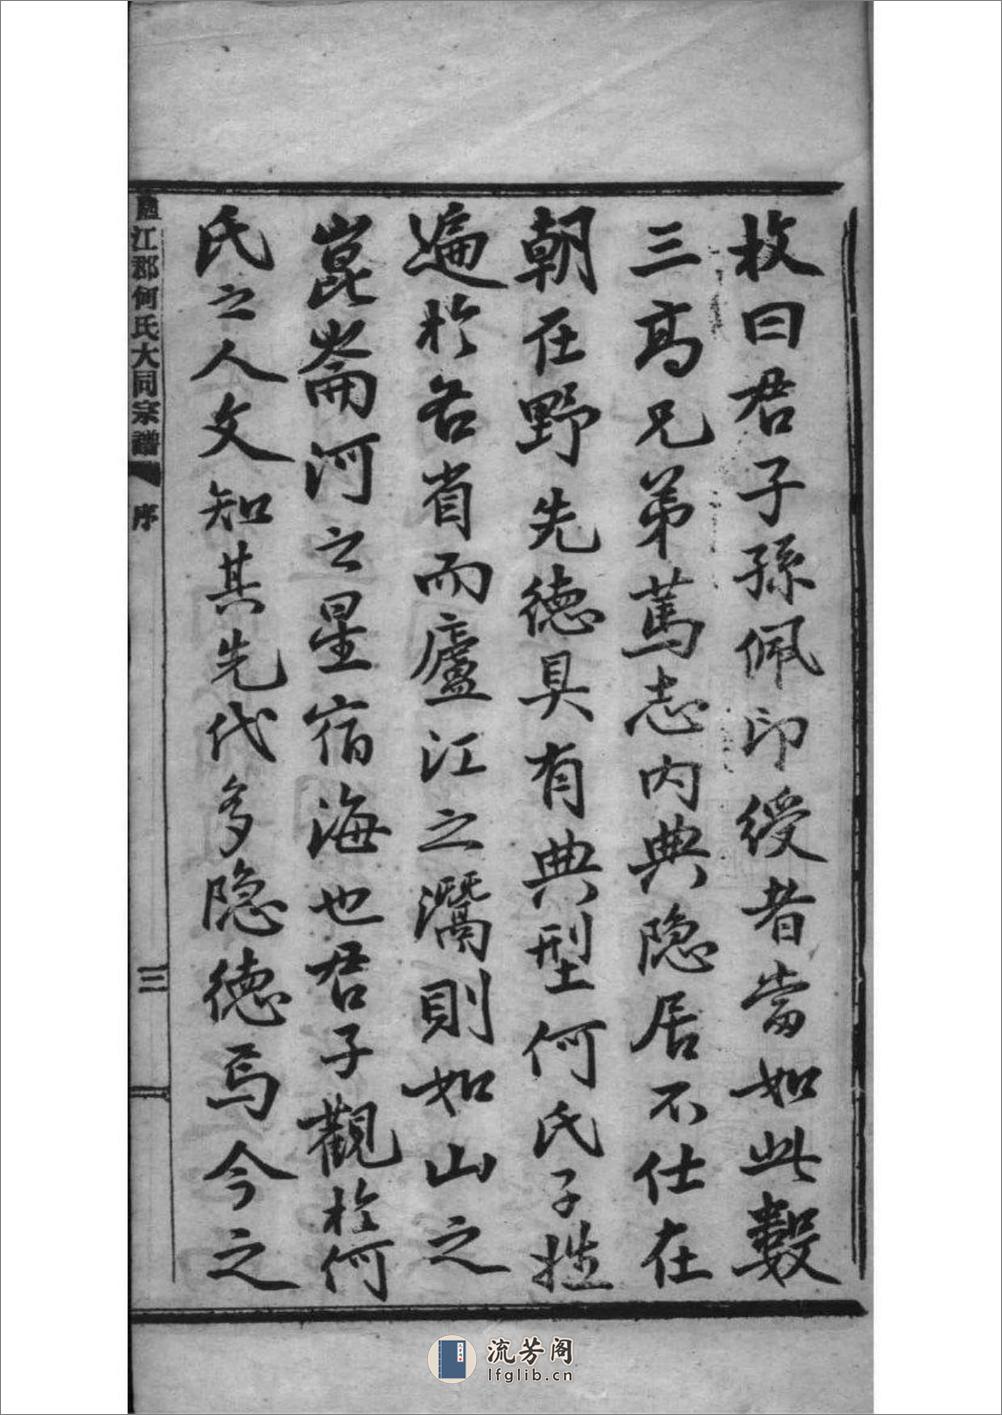 枚曰君子孫佩印綬者當如此數
三高兄弟篤志内典隐居不仕在
朝在野先德具有典型何氏子姓
遍於各省而廬江之灊則如山之
崑崙河之星宿海也君子觀於何
氏之人文知其先代多隐德焉今之
廬江郡何氏大同宗譜
序
三
流芳阁
lfglib.cn